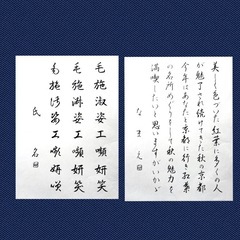 美しく色づいた紅葉に多くの人
が魅了され続けてきた秋の京都
今年はあなたと京都に行き紅葉
の名所めぐりをして秋の魅力を
満喫したいと思いますがいかが
なまえ印
毛施淑姿工嚬妍笑
毛施淑姿工嚬妍笑
毛施淑姿工嚬妍咲
氏名印